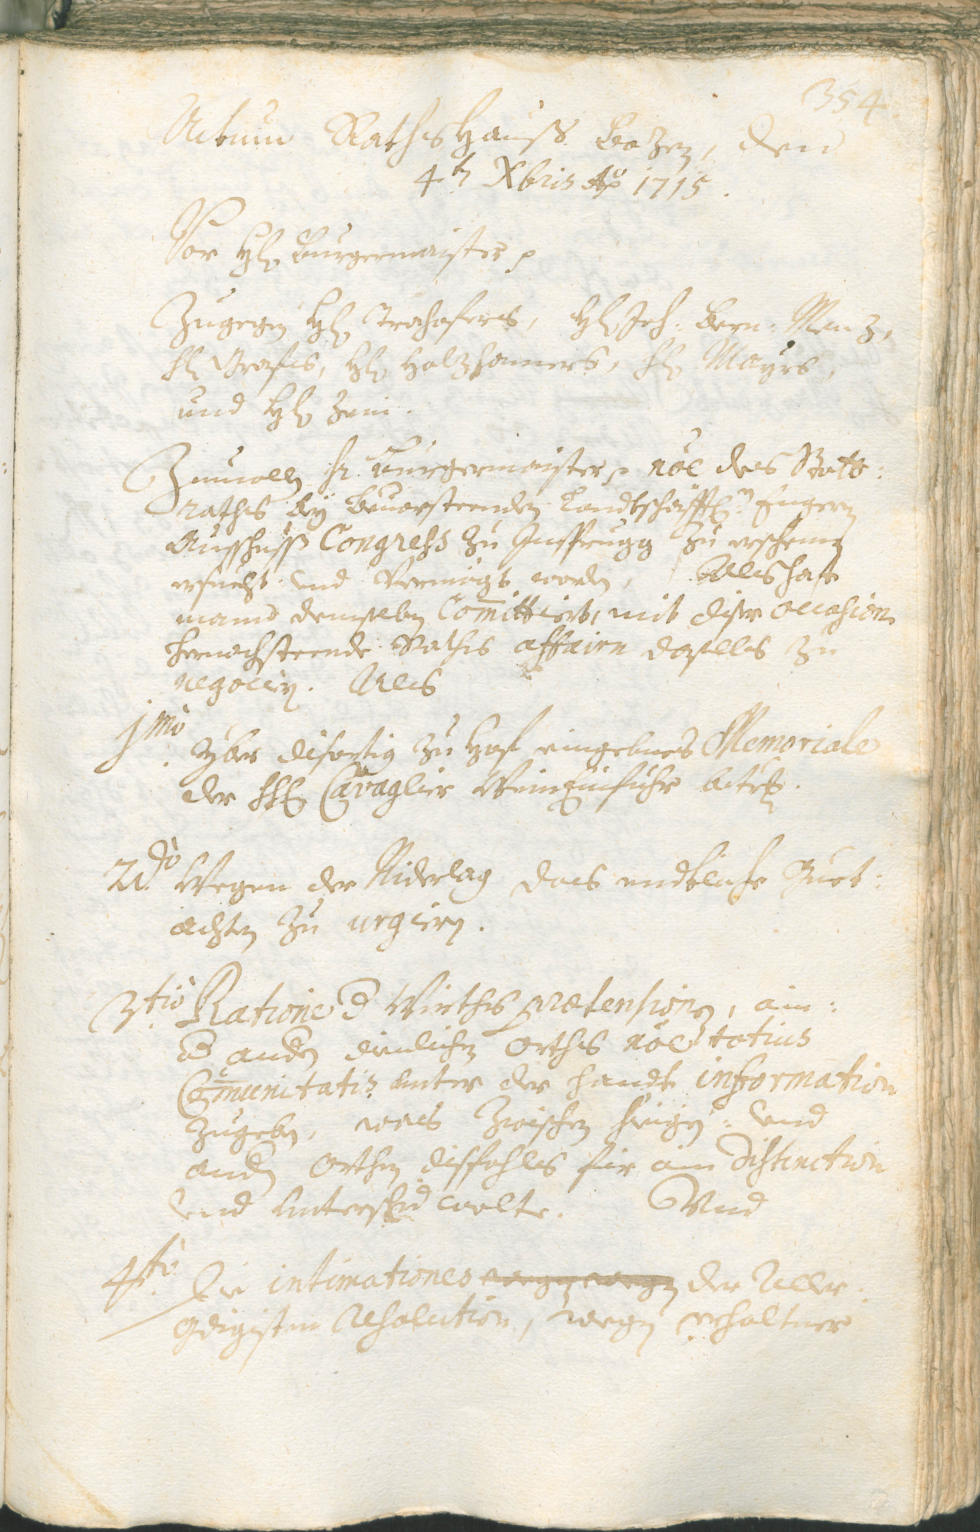 354.
Actum Rathshauß Bozen, den
4t Xbris Aõ 1715.
Vor H: Burgermaister p
Zugegen H: Trochoferer, H: Joh: Bern: Menz,
H: Grafes, H: Holzhamer, H: Mayrs,
und H: Zeni.
Zumallen H: Burgermaister p nõe des Statt:
raths bey bevorsteenden Landtschäfftl: Engern
Ausschuß Congress zu Insprugg zu erscheinen
ersuecht und vermögt worden, Alls hat
mann demselben Com̃ittiert, mit diser occasion
hernachsteende Raths affairn daselbs zu
negociern. Als
1mo: yber diserthig zu Hof eingebnes Memoriale
der HH: Cavaglier Weineinfuhr betr:
2do: Wegen der Niderlag das endtliche Guet:
achten zu urgiern.
3tio: Ratione d Würths prætensionen, ain:
und andern dienlichen Orths nõe totius
Com̃unitatis unter der handt information
zugeben, was zwischen hiesigen: und
andern Orthen dissfahls für ain distinction
und Unterschid walte. Und
4to: Die intimationes der Aller:
gdigisten Resolution, wegen erhaltner